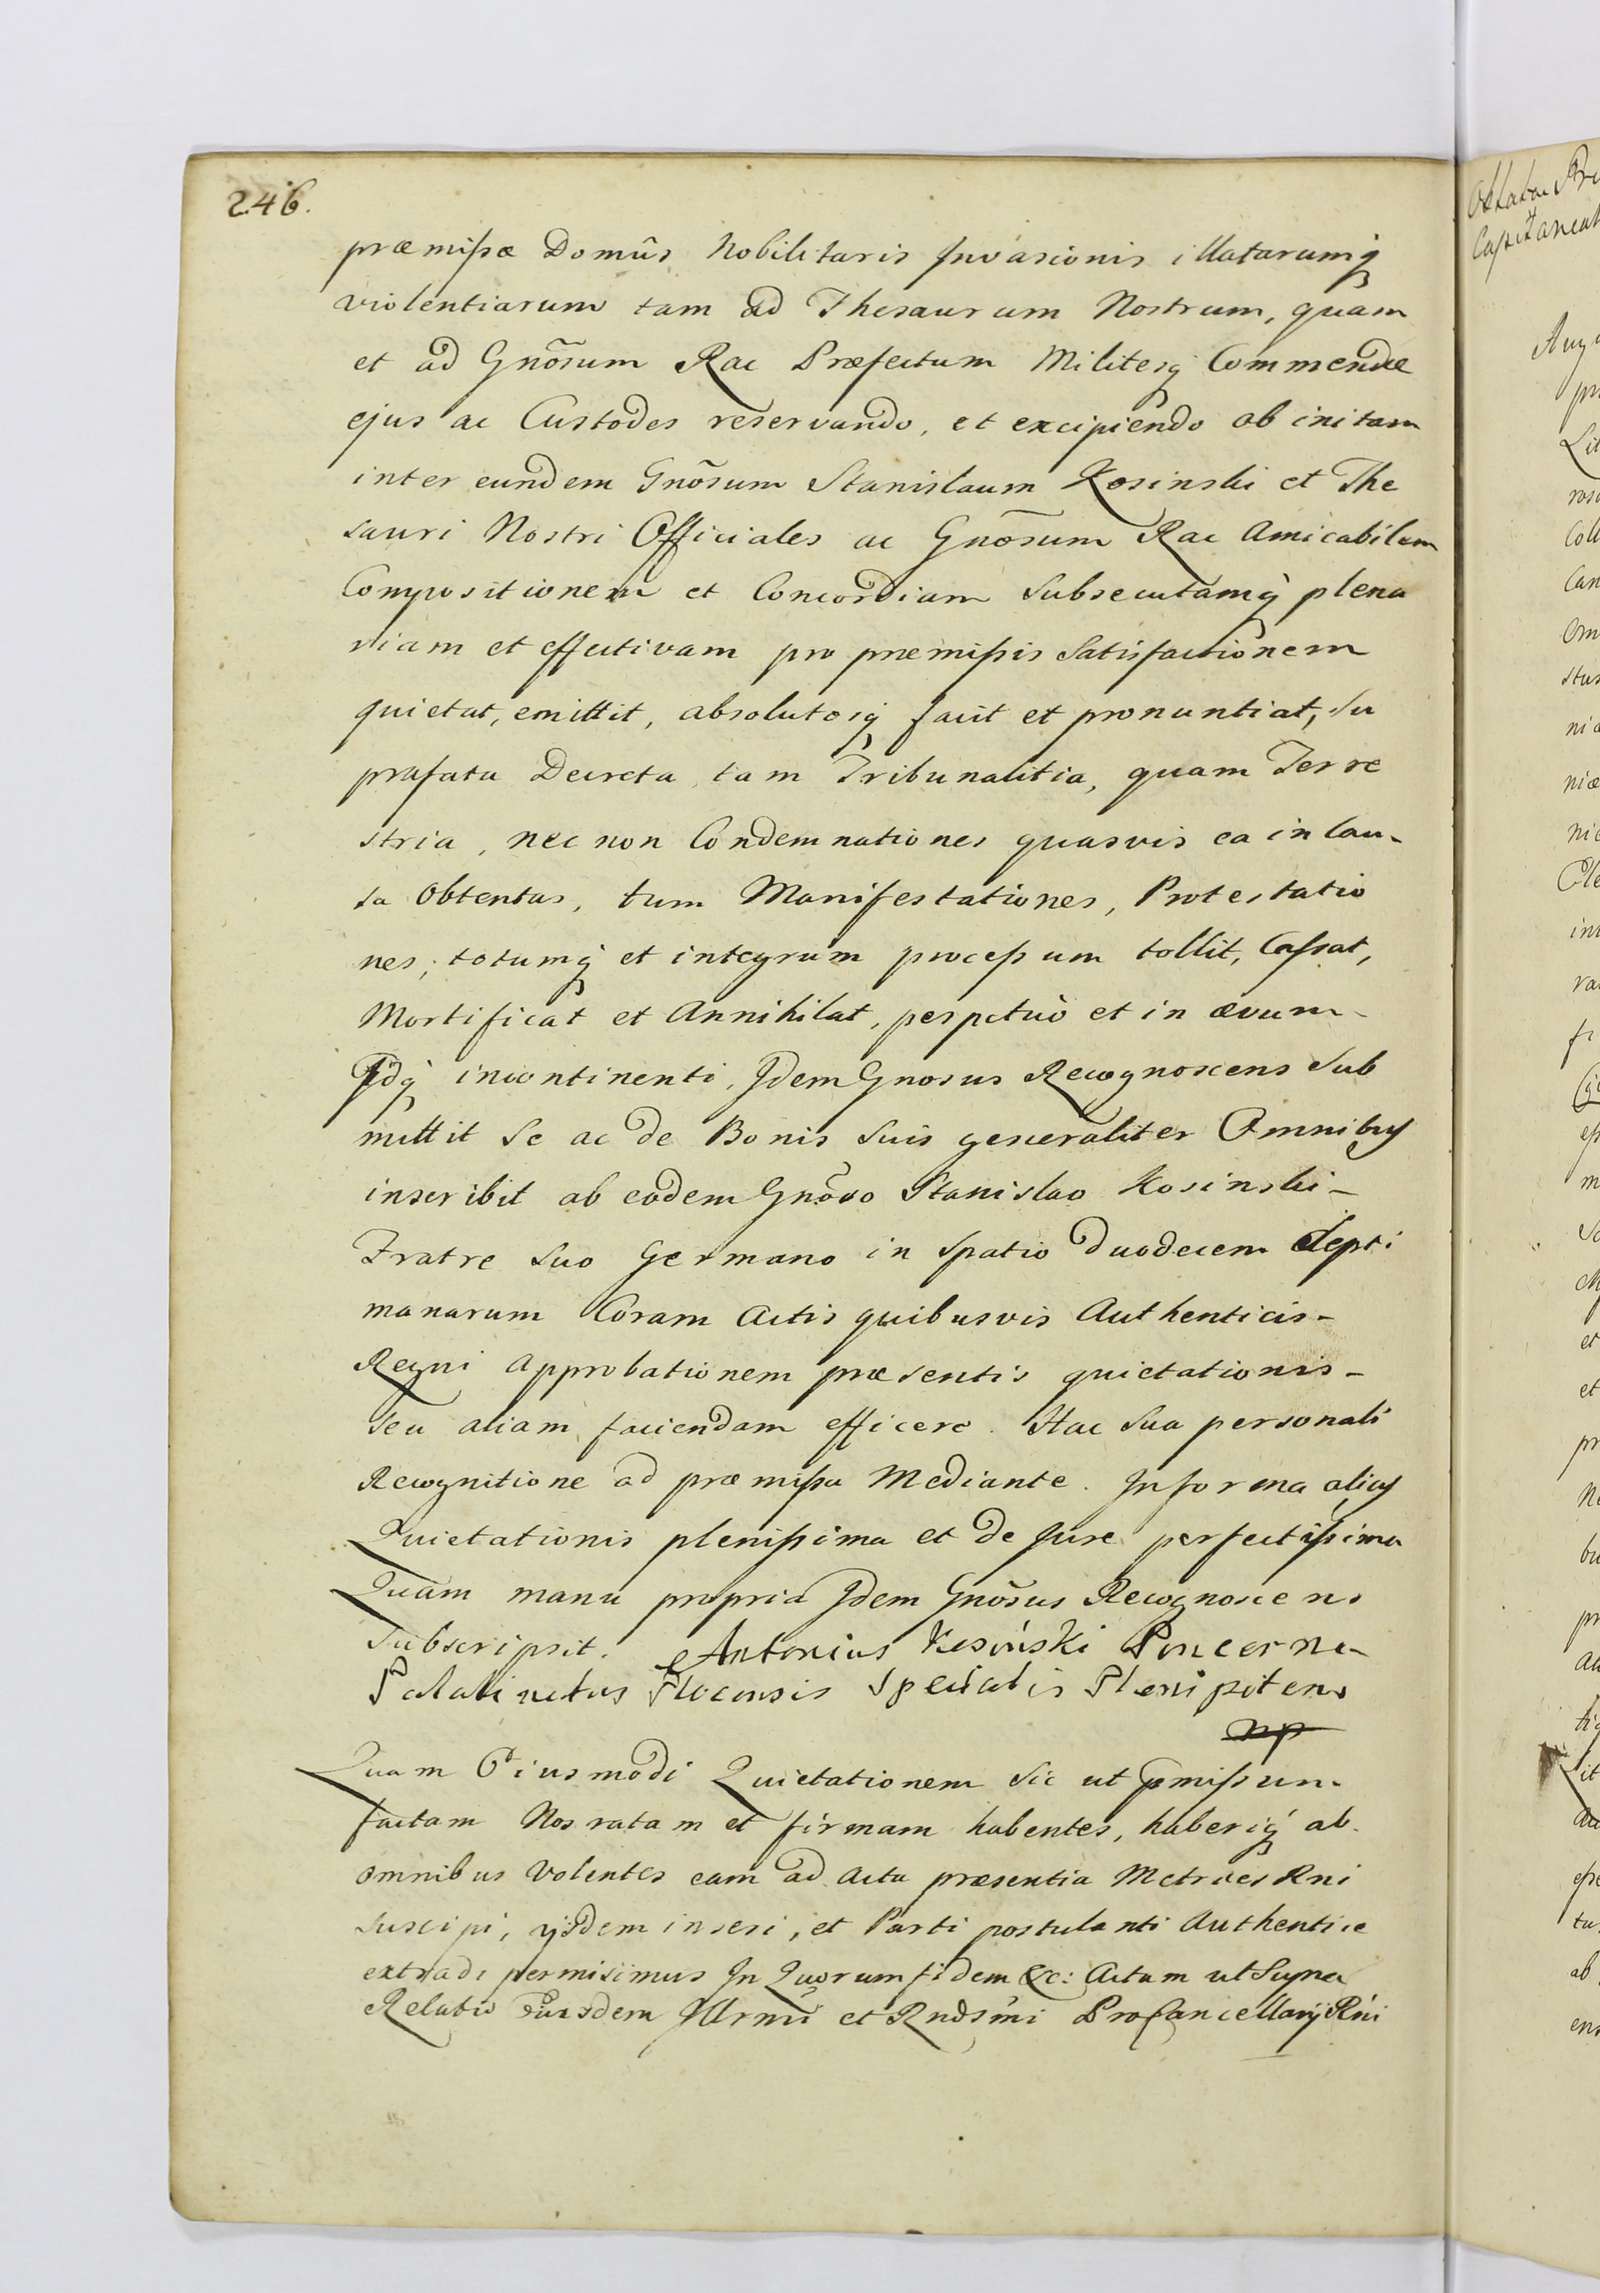 246.
præmissæ Domûs Nobilitaris Invasionis illatarumq́
violentiarum tam ad Thesaurum Nostrum, quam
et ad Gnõsum Rac Præfectum Militesq́ Commendæ
ejus ac Custodes reservando, et excipiendo ob initam
inter eundem Gnõsum Stanislaum Kosinski et The
sauri Nostri Officiales ac Gnõsum Rac Amicabilem
Compositionem et Concordiam Subsecutamq́ plena
riam et effectivam pro præmissis Satisfactionem
quietat, emittit, absolutosq́ facit et pronuntiat, Su
prafata Decreta tam Tribunalitia, quam Terre
stria, nec non Condemnationes quasvis ea in Cau-
sa Obtentas, tum Manifestationes, Protestatio
nes, totumq́ et integrum processum tollit, Cassat,
Mortificat et Annihilat, perpetuò et in ævum-
Idq́ incontinenti, Idem Gnosus Recognoscens Sub
mittit Se ac de Bonis Suis generaliter Omnibus
inscribit ab eodem Gnõso Stanislao Kosinski-
Fratre Suo Germano in Spatio Duodecem Septi
manarum Coram Actis quibusvis Authenticis-
Regni Approbationem præsentis quietationis-
Seu aliam faciendam efficere. Hac Sua personali
Recognitione ad præmissa Mediante. In forma alias
Quietationis plenissima et de Jure perfectissima
Quam manu propria Idem Gnõsus Recognoscens
Subscripsit. Antonius Kosiński Pincerna
Palatinatus Plocensis Specialis Plenipotens
mp
Quam Eiusmodi Quietationem Sic ut pmissum-
factam Nos ratam et firmam habentes, haberiq́ ab
omnibus Volentes eam ad Acta præsentia Metrices Rni
Suscipi, ijsdem inseri, et Parti postulanti Authentice
extradi permisimus In Quorum fidem &c: Actum ut Supra
Relatio Eiusdem Illrmi et Rndsmi ProCancellarij Rni
Capitaneat